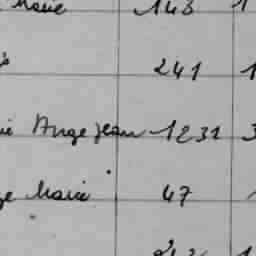 Marie 143 1
241 1
ie Ange Jean 1231 3
ge Marie 47